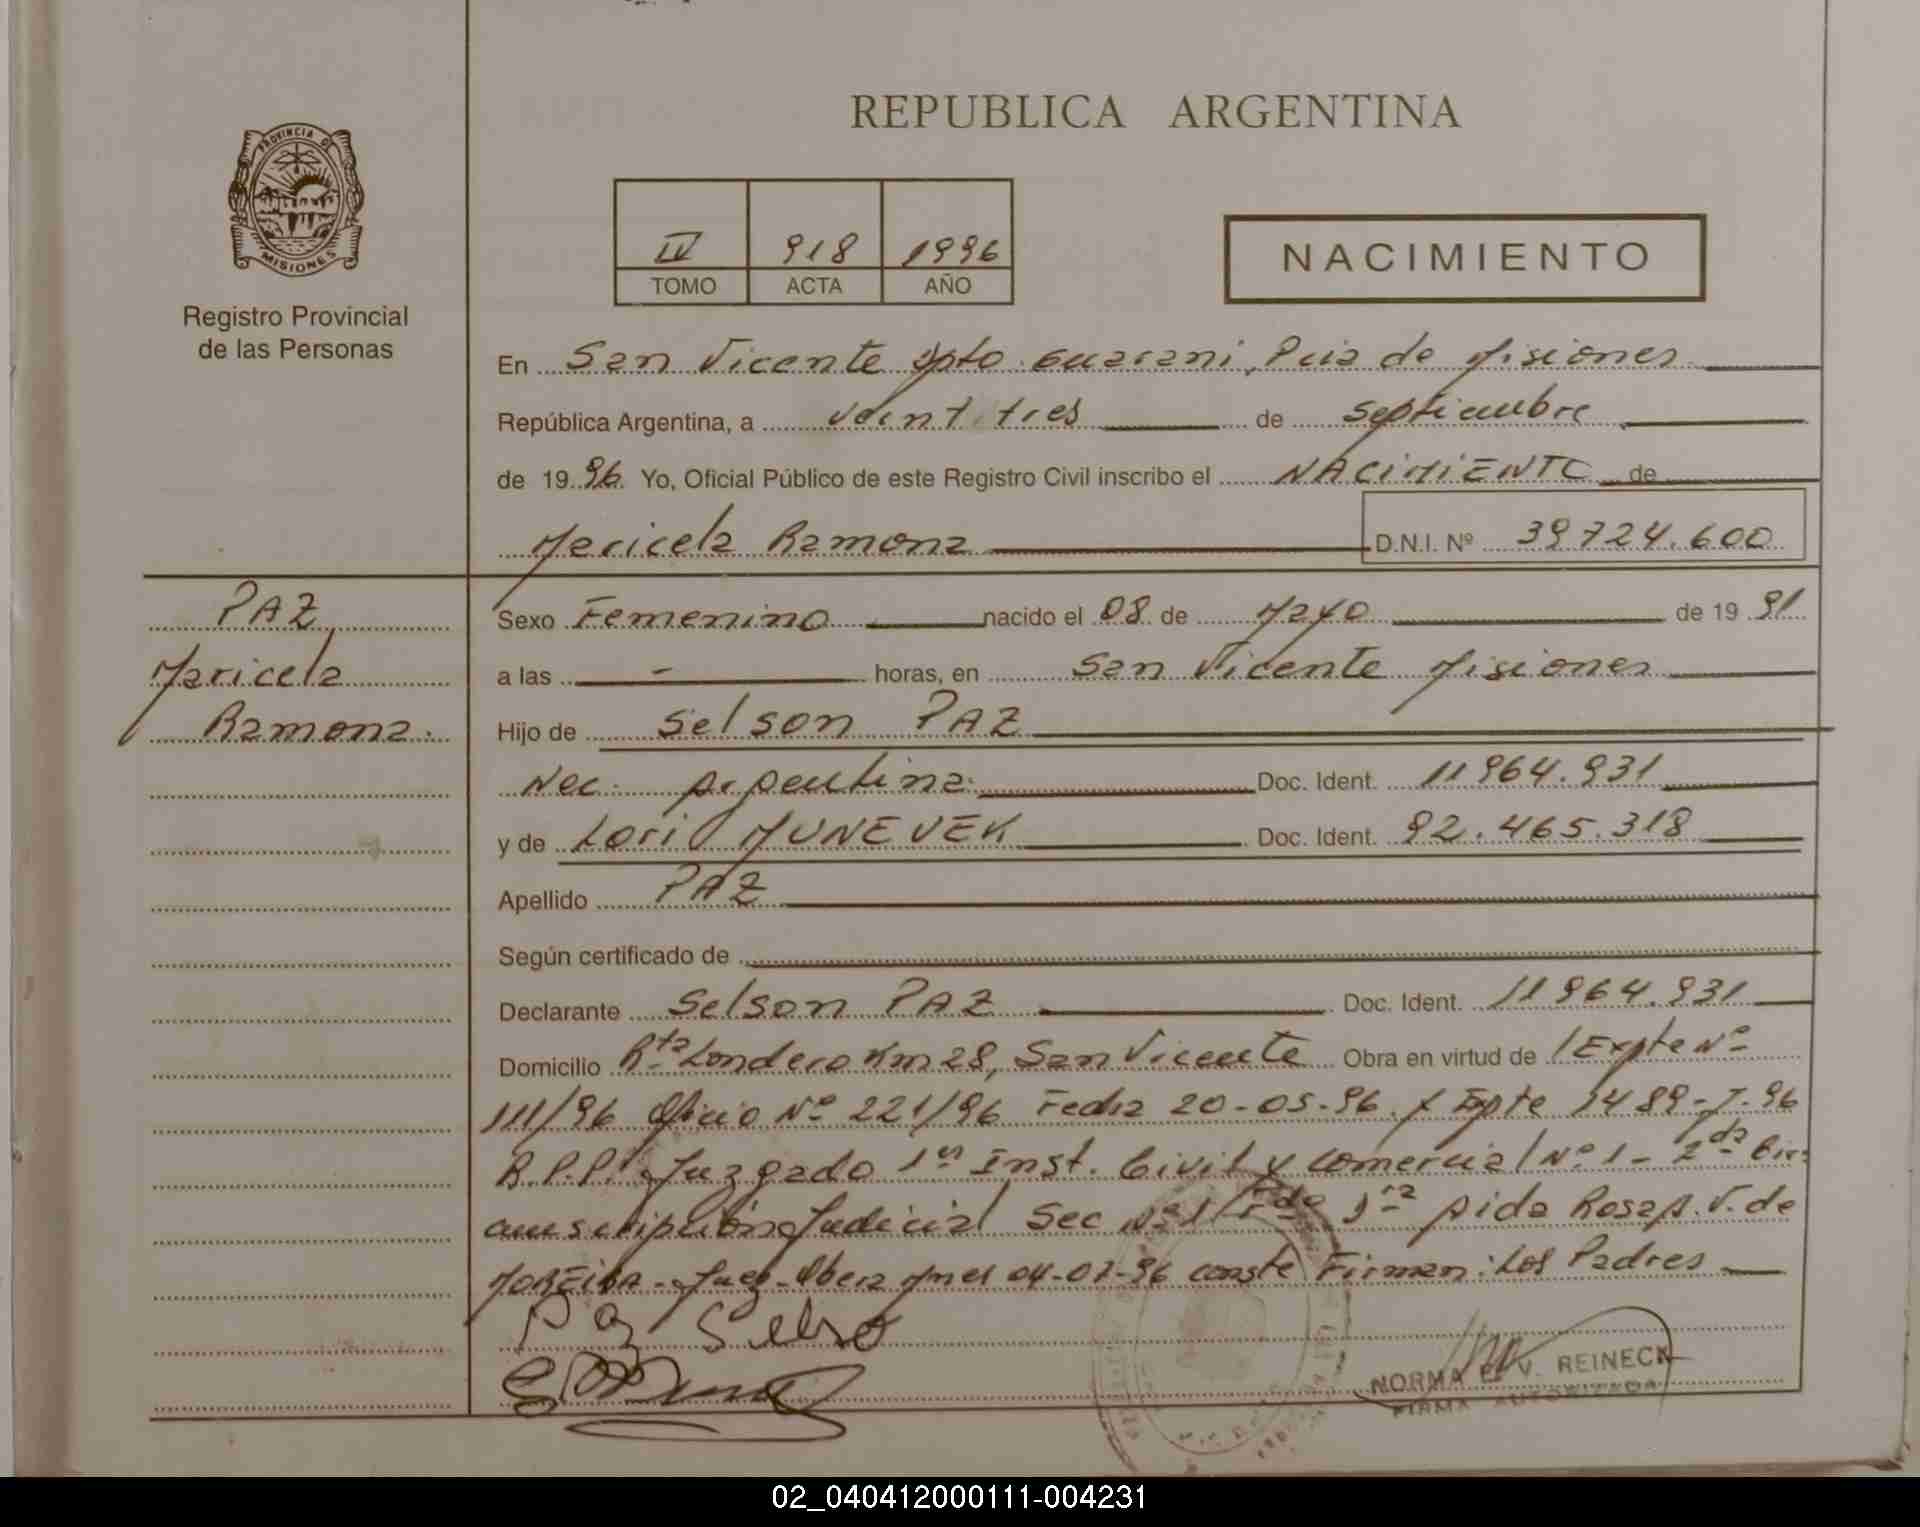 REPUBLICA ARGENTINA
PROVINCIA DE
MISIONES
Registro Provincial
de las Personas
IV 918 1996
TOMO ACTA AÑO
NACIMIENTO
En San Vicente Dpto Guarani, Pcia de Misiones
República Argentina, a veintitres de septiembre
de 1996 Yo, Oficial Público de este Registro Civil inscribo el NACIMIENTO de
Maricela Ramona D.N.I. Nº 39724.600
PAZ
Maricela
Ramona.
Sexo Femenino nacido el 08 de Mayo de 1991
a las - horas, en San Vicente Misiones
Hijo de Selson PAZ
Nac. Argentina. Doc. Ident. 11964.931
y de Lori MUNEVEK Doc. Ident. 92.465.318
Apellido PAZ
Según certificado de
Declarante Selson PAZ Doc. Ident. 11964.931
Domicilio Rta Londero Km 28, San Vicente Obra en virtud de Expte Nº
111/96 Oficio Nº 221/96 Fecha 20-05-96 Expte 1489-T-96
R.P.P. Juzgado 1ra Inst. Civil y Comercial Nº 1 - 2da Cir
cunscripción Judicial Sec Nº 1 Fdo Aida Rosa A. V. de
MOREIRA - Juez - Obera Mnes 04-07-96 conste Firman: Los Padres
Paz Selso
NORMA E. V. REINECK
FIRMA AUTORIZADA
02_040412000111-004231